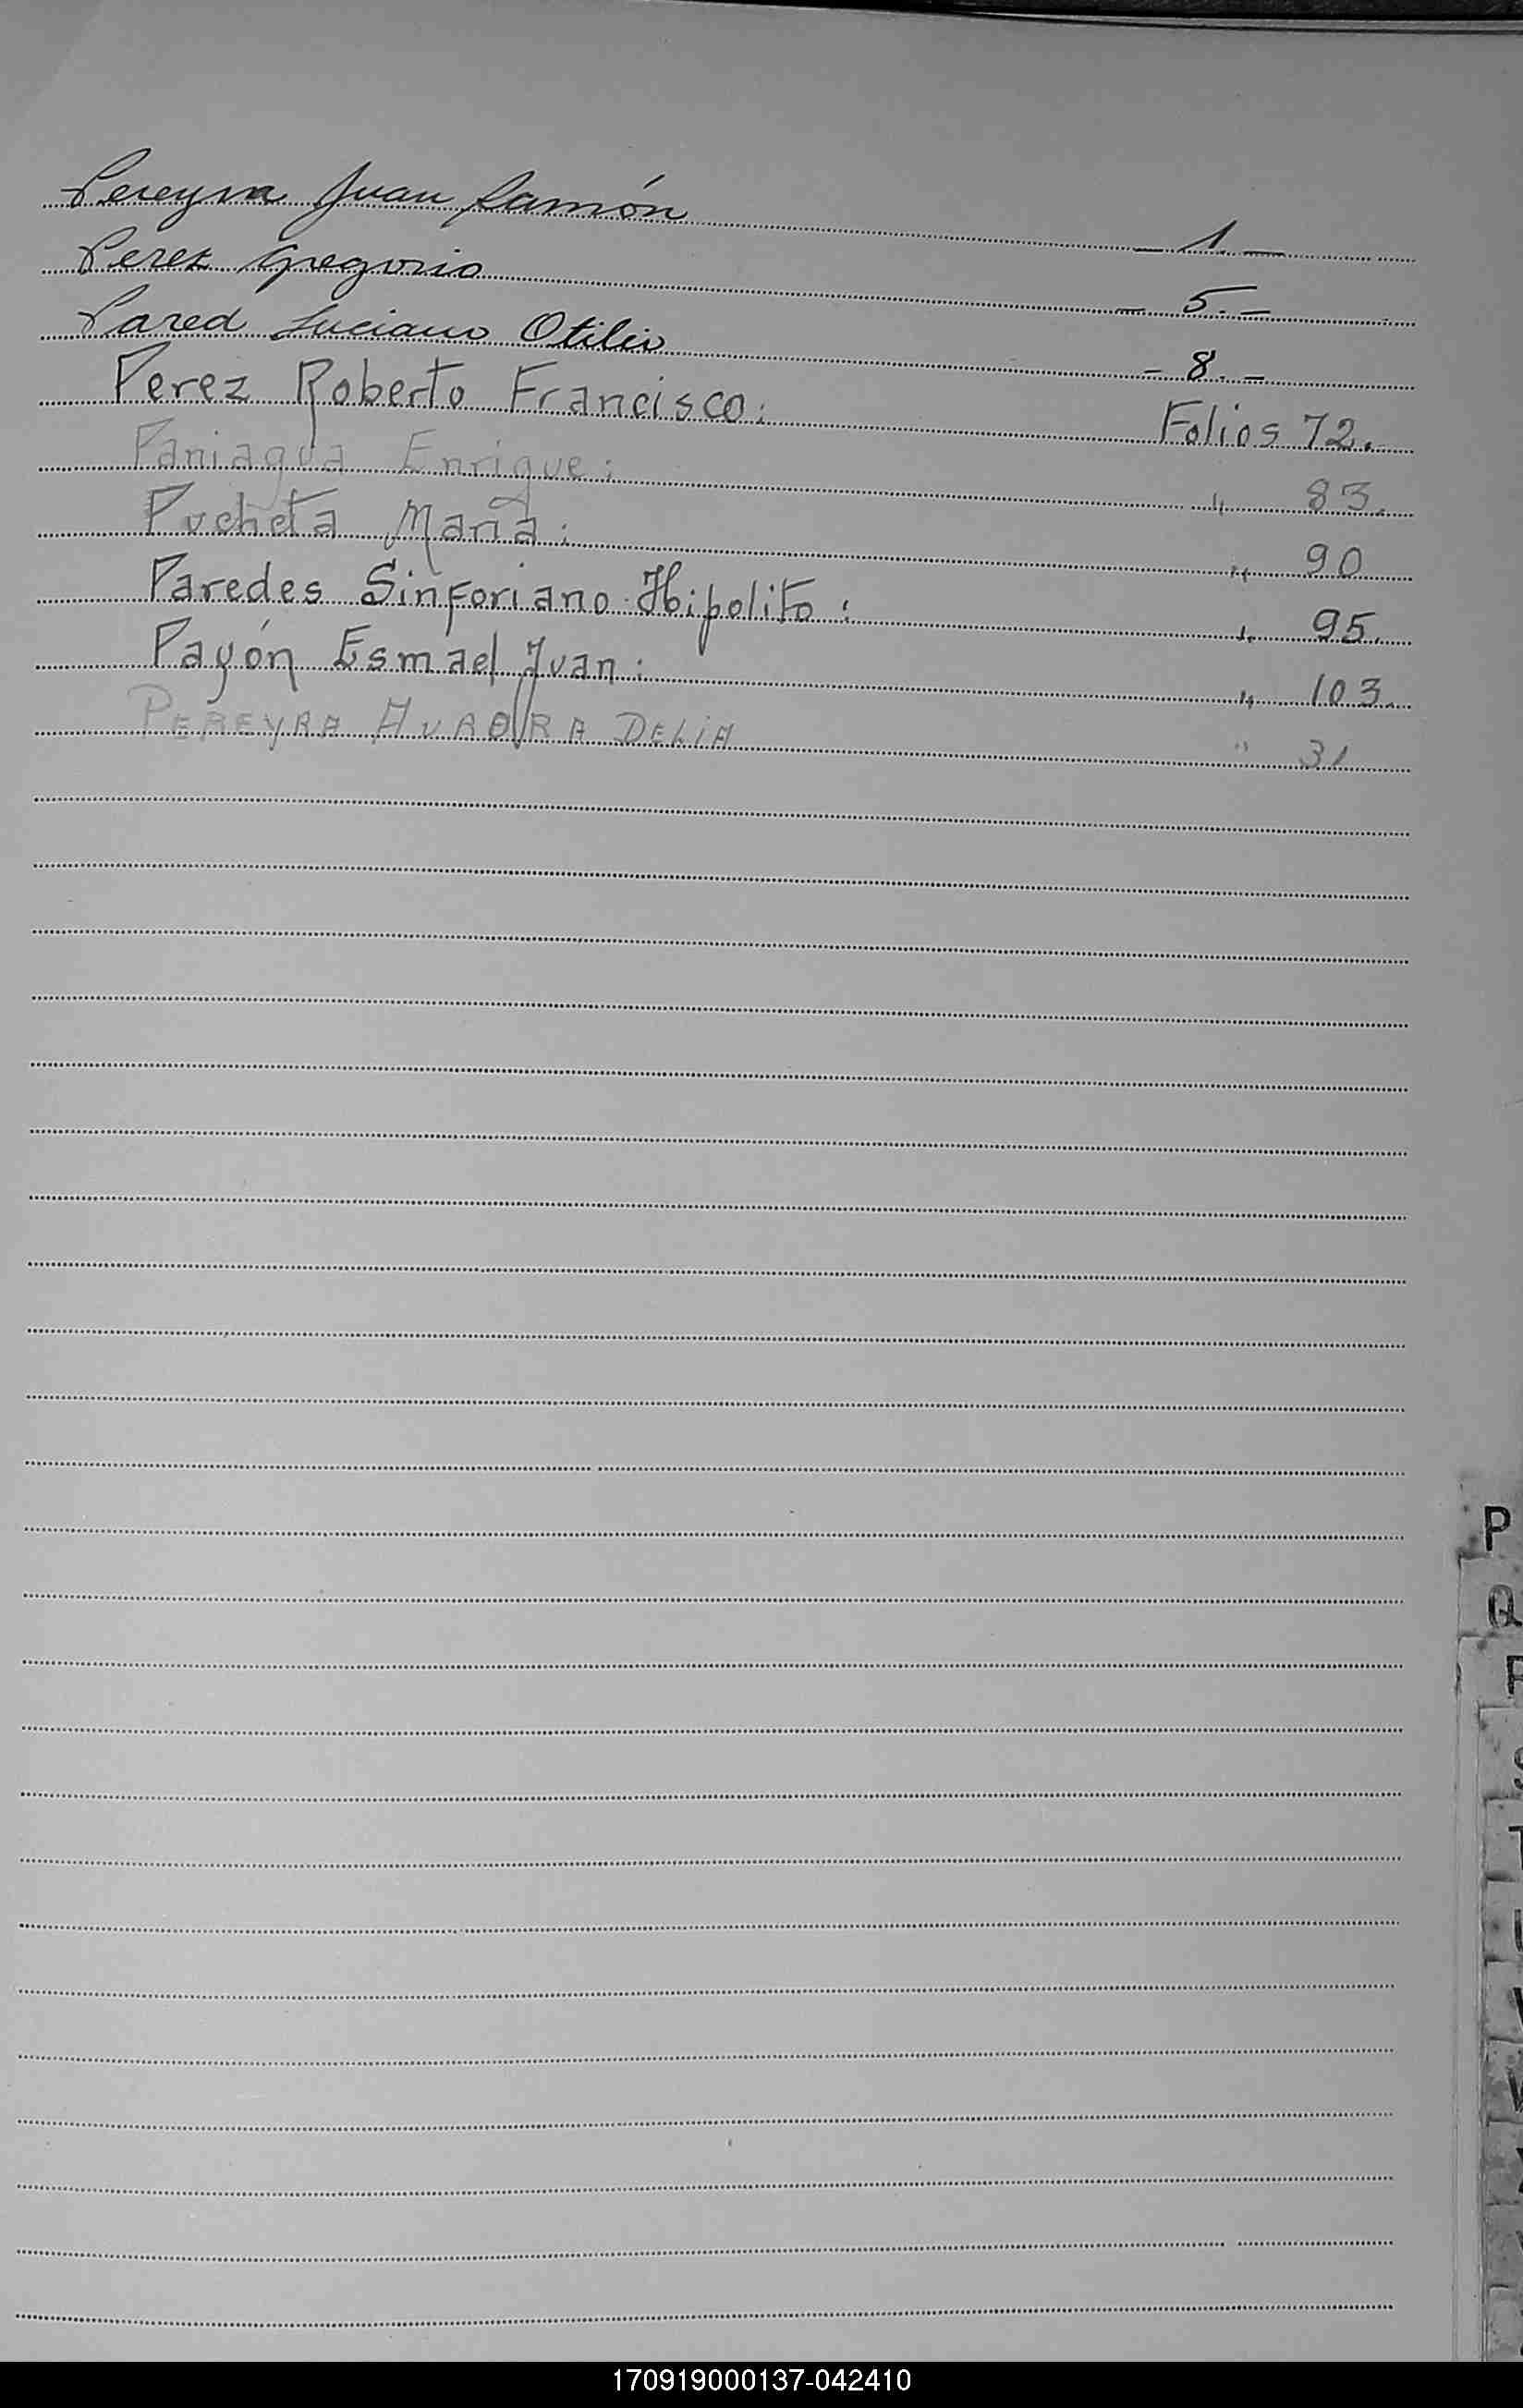 Pereyra Juan Ramón - 1. -
Perez Gregorio - 5. -
Pared Luciano Otilio - 8. -
Perez Roberto Francisco: Folios 72.
Paniagua Enrique: " 83.
Pucheta Maria: " 90
Paredes Sinforiano Hipolito: " 95.
Payón Esmael Juan: " 103.
PEREYRA AURORA DELiA " 31
P
Q
R
S
T
U
V
W
X
Y
170919000137-042410